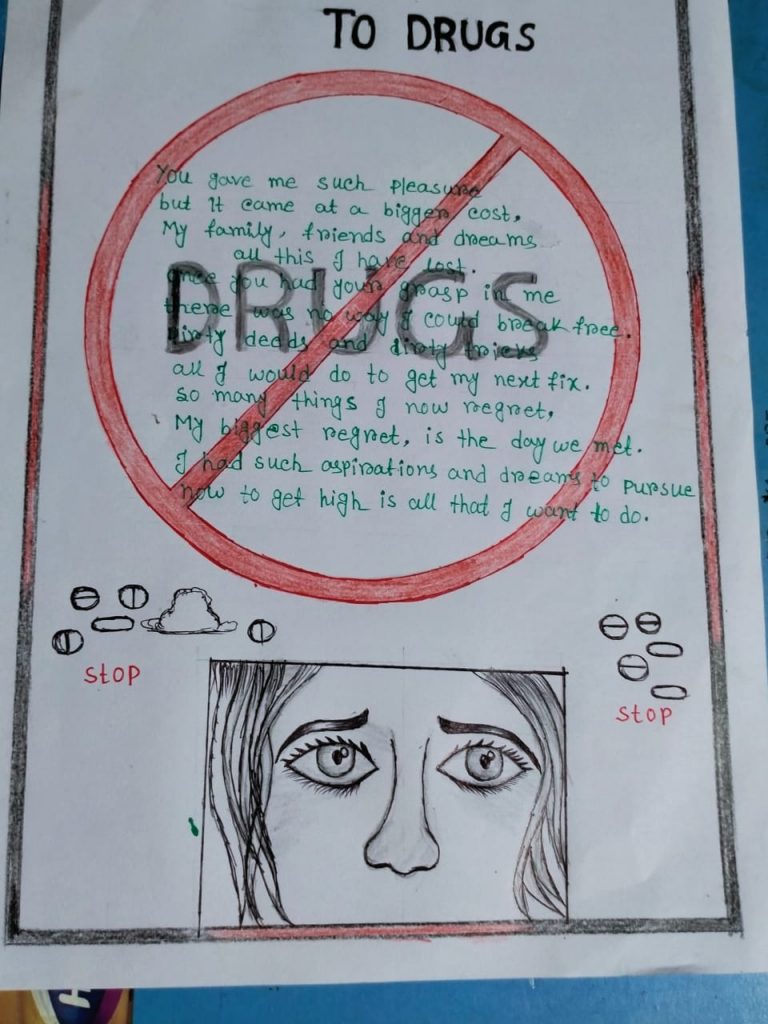 TO DRUGS
You gave me such pleasure
but it came at a bigger cost,
My family, friends and dreams
all this I have lost.
DRUGS
once you had your grasp in me
there was no way I could break free.
Dirty deeds and dirty tricks
all I would do to get my next fix.
so many things I now regret,
My biggest regret, is the day we met.
I had such aspirations and dreams to pursue
now to get high is all that I want to do.
STOP
STOP